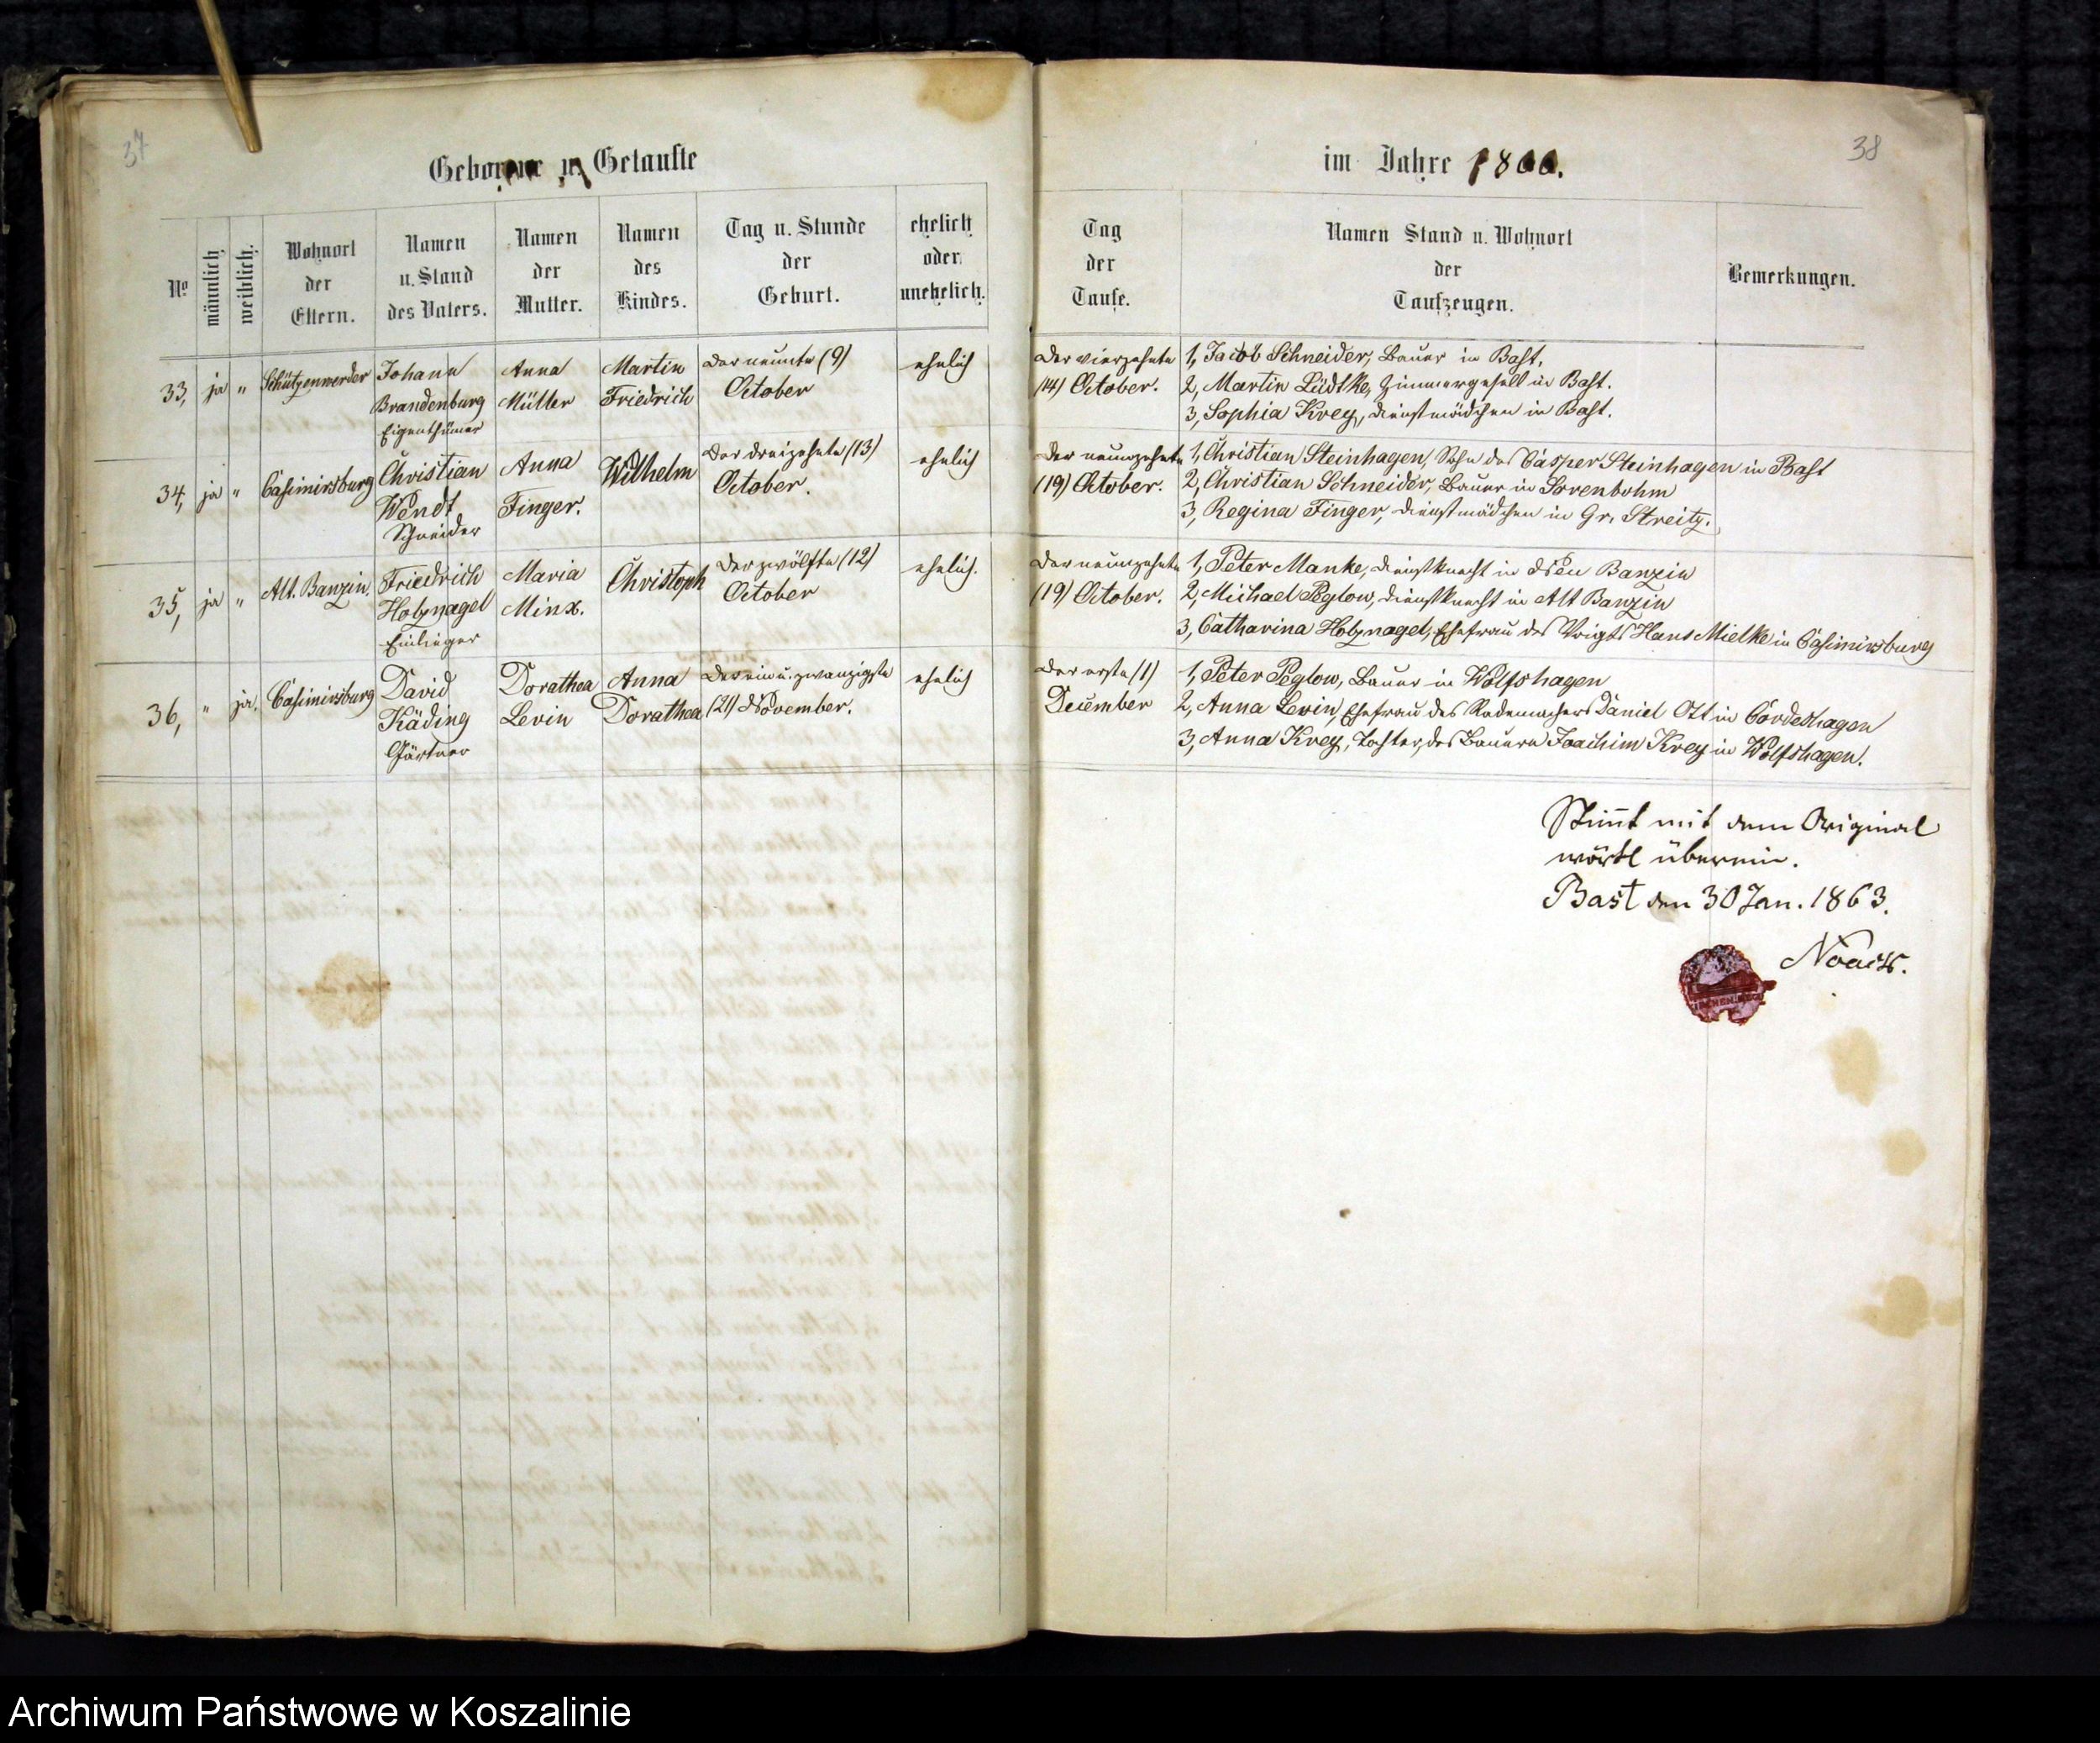 37
Geborene u. Getaufte
No
männlich
weiblich.
Wohnort
der
Eltern.
Namen
u. Stand
des Vaters.
Namen
der
Mutter.
Namen
des
Kindes.
Tag u. Stunde
der
Geburt.
ehelich
oder
unehelich.
33, ja " Schützenwerder Johann Anna Martin Der neunte (9) ehelich
Brandenburg Müller Friedrich October
Eigenthümer
34, ja " Casimirsburg Christian Anna Wilhelm Der dreizehnte (13) ehelich
Wendt Finger. October.
Schneider
35, ja " Alt. Banzin. Friedrich Maria Christoph Der zwölfte (12) ehelich.
Holznagel Minx. October
Einlieger
36, " ja. Casimirsburg David Dorathea Anna Der ein u. zwanzigste ehelich
Käding Levin Dorathea (21) November.
Gärtner
38
im Jahre 1800.
Tag
der
Taufe.
Namen Stand u. Wohnort
der
Taufzeugen.
Bemerkungen.
Der vierzehnte 1, Jacob Schneider, Bauer in Bast,
(14) October. 2, Martin Lüdtke, Zimmergesell in Bast.
3, Sophia Krey, Dienstmädchen in Bast.
Der neunzehnte 1, Christian Steinhagen, Sohn des Casper Steinhagen in Bast
(19) October. 2, Christian Schneider, Bauer in Sorenbohm
3, Regina Finger, Dienstmädchen in Gr. Streitz.
Der neunzehnte 1, Peter Manke, Dienstknecht in Neu Banzin
(19) October. 2, Michael Peglow, Dienstknecht in Alt Banzin
3, Catharina Holznagel, Ehefrau des Voigts Hans Mielke in Casimirsburg
Der erste (1) 1, Peter Peglow, Bauer in Wolfshagen
December 2, Anna Levin, Ehefrau des Rademachers Daniel Ott in Cordeshagen
3, Anna Krey, Tochter des Bauern Joachim Krey in Wolfshagen.
Stimt mit dem Original
wörtl überein.
Bast den 30 Jan. 1863.
Noack.
Archiwum Państwowe w Koszalinie